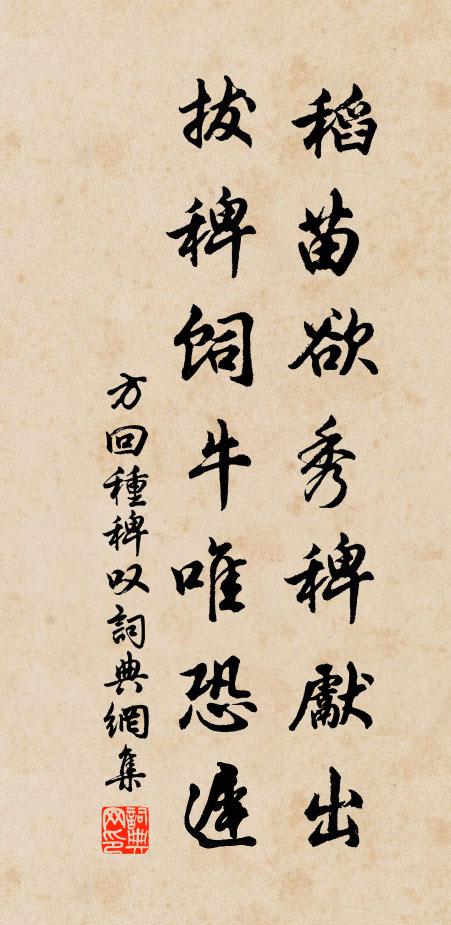 稻苗欲秀稗獻出
拔稗飼牛唯恐遲
方回種稗叹詞典網集
詞典网印